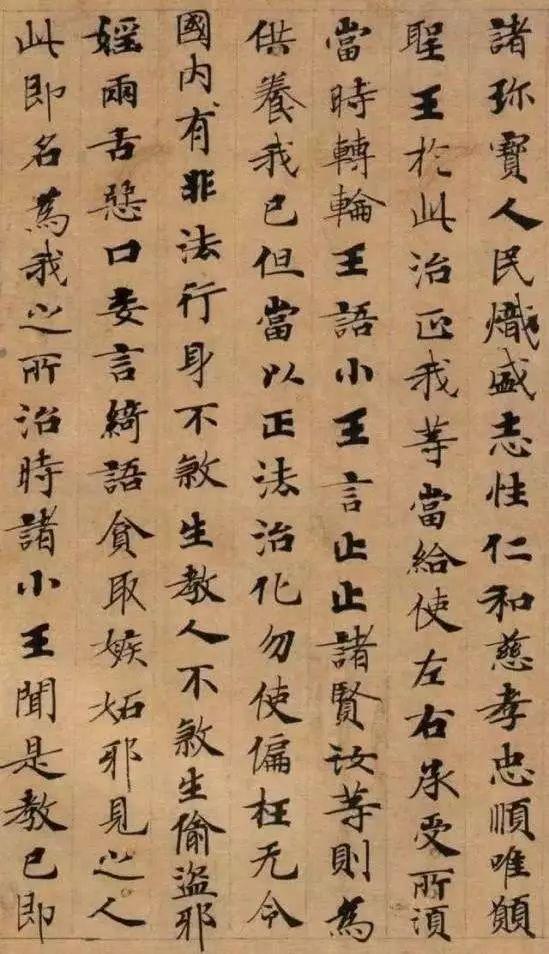 諸珎寶人民熾盛志性仁和慈孝忠順唯願
聖王於此治正我等當給使左右承受所須
當時轉輪王語小王言止止諸賢汝等則為
供養我已但當以正法治化勿使偏枉无令
國內有非法行身不煞生教人不煞生偷盜邪
婬兩舌惡口妄言綺語貪取嫉妬邪見之人
此即名為我之所治時諸小王聞是教已即